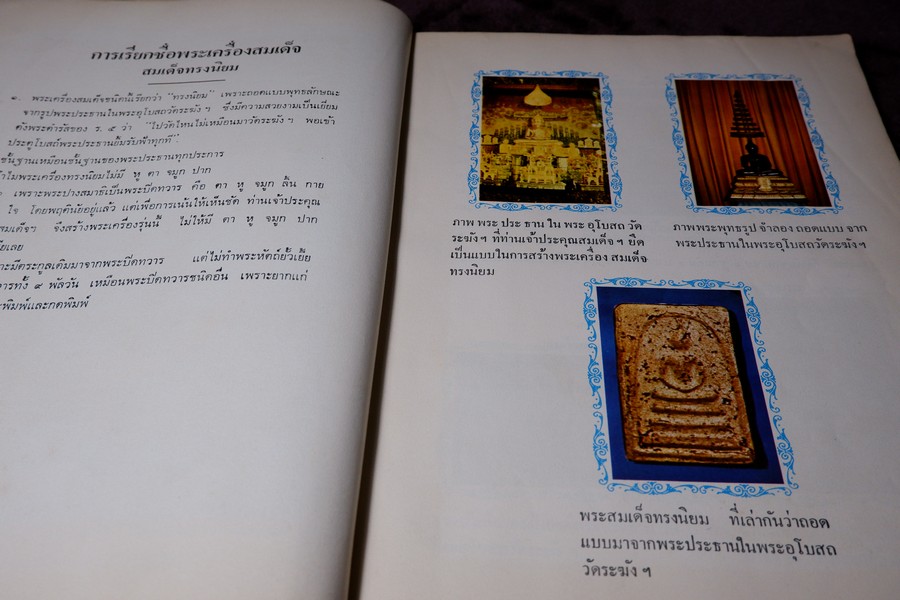 การเรียกชื่อพระเครื่องสมเด็จ
สมเด็จทรงนิยม
๑. พระเครื่องสมเด็จชนิดนี้เรียกว่า “ทรงนิยม” เพราะถอดแบบพุทธลักษณะ
จากรูปพระประธานในพระอุโบสถวัดระฆังฯ ซึ่งมีความสวยงามเป็นเยี่ยม
ดังพระดำรัสของ ร. ๕ ว่า “ไปวัดไหนไม่เหมือนมาวัดระฆังฯ พอเข้า
ประตูโบสถ์พระประธานยิ้มรับฟ้าทุกที”
ชั้นฐานเหมือนชั้นฐานของพระประธานทุกประการ
ทำไมพระเครื่องทรงนิยมไม่มี หู ตา จมูก ปาก
เพราะพระปางสมาธิเป็นพระปิดทวาร คือ ตา หู จมูก ลิ้น กาย
ใจ โดยพฤตินัยอยู่แล้ว แต่เพื่อการเน้นให้เห็นชัด ท่านเจ้าประคุณ
สมเด็จฯ จึงสร้างพระเครื่องรุ่นนี้ ไม่ให้มี ตา หู จมูก ปาก
เลย
มีตระกูลเดิมมาจากพระปิดทวาร แต่ไม่ทำพระหัตถ์ยั้วเยี้ย
ทั้ง ๙ พัลวัน เหมือนพระปิดทวารชนิดอื่น เพราะยากแก่
พิมพ์และกดพิมพ์
ภาพ พระ ประ ธาน ใน พระ อุโบสถ วัด
ระฆังฯ ที่ท่านเจ้าประคุณสมเด็จฯ ยึด
เป็นแบบในการสร้างพระเครื่อง สมเด็จ
ทรงนิยม
ภาพพระพุทธรูป จำลอง ถอดแบบ จาก
พระประธานในพระอุโบสถวัดระฆังฯ
พระสมเด็จทรงนิยม ที่เล่ากันว่าถอด
แบบมาจากพระประธานในพระอุโบสถ
วัดระฆัง ฯ